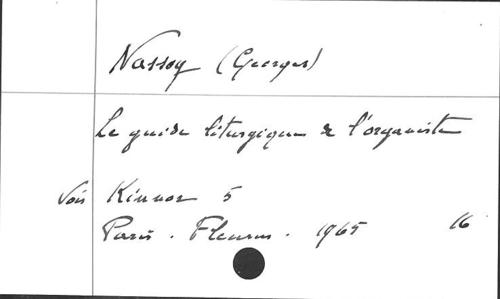 Nassoy (Georges)
Le guide liturgique de l'organiste
Voir Kinnor 5
Paris. Fleurus. 1965 16